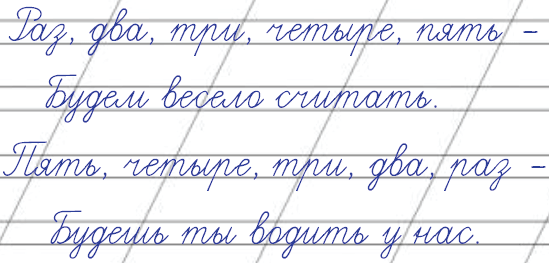 Раз, два, три, четыре, пять –
Будем весело считать.
Пять, четыре, три, два, раз –
Будешь ты водить у нас.